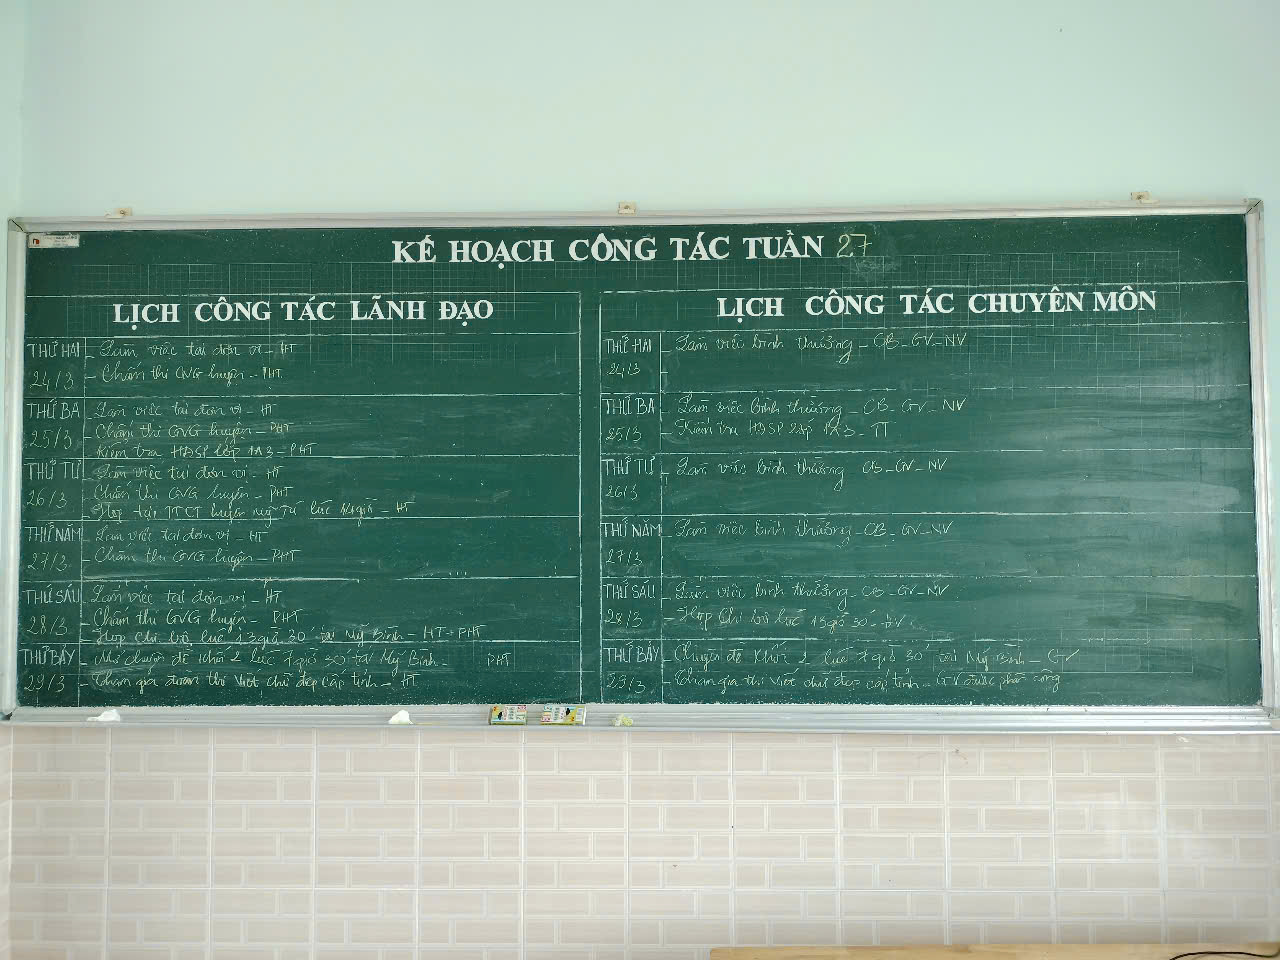 KẾ HOẠCH CÔNG TÁC TUẦN 27
LỊCH CÔNG TÁC LÃNH ĐẠO
THỨ HAI - Làm việc tại đơn vị - HT
24/3 - Chấm thi GVG huyện - PHT
THỨ BA - Làm việc tại đơn vị - HT
25/3 - Chấm thi GVG huyện - PHT
- Kiểm tra HĐSP lớp 1A3 - PHT
THỨ TƯ - Làm việc tại đơn vị - HT
26/3 - Chấm thi GVG huyện - PHT
- Họp tại TTCT huyện Mỹ Tú lúc giờ - HT
THỨ NĂM - Làm việc tại đơn vị - HT
27/3 - Chấm thi GVG huyện - PHT
THỨ SÁU - Làm việc tại đơn vị - HT
28/3 - Chấm thi GVG huyện - PHT
- Họp Chi bộ lúc 13 giờ 30' tại Mỹ Bình - HT + PHT
THỨ BẢY - chuyên đề Khối 2 lúc 7 giờ 30' tại Mỹ Bình - PHT
29/3 - Tham gia đoàn thi Viết chữ đẹp cấp tỉnh - HT
LỊCH CÔNG TÁC CHUYÊN MÔN
THỨ HAI - Làm việc bình thường - CB - GV - NV
24/3 -
THỨ BA - Làm việc bình thường - CB - GV - NV
25/3 - Kiểm tra HĐSP lớp 1A3 - TT
THỨ TƯ - Làm việc bình thường CB - GV - NV
26/3
THỨ NĂM - Làm việc bình thường - CB - GV - NV
27/3
THỨ SÁU - Làm việc bình thường - CB - GV - NV
28/3 - Họp Chi bộ lúc 13 giờ 30' -
THỨ BẢY - Chuyên đề Khối 2 lúc 7 giờ 30' tại Mỹ Bình - GV
29/3 - Tham gia thi Viết chữ đẹp cấp tỉnh - GV được phân công